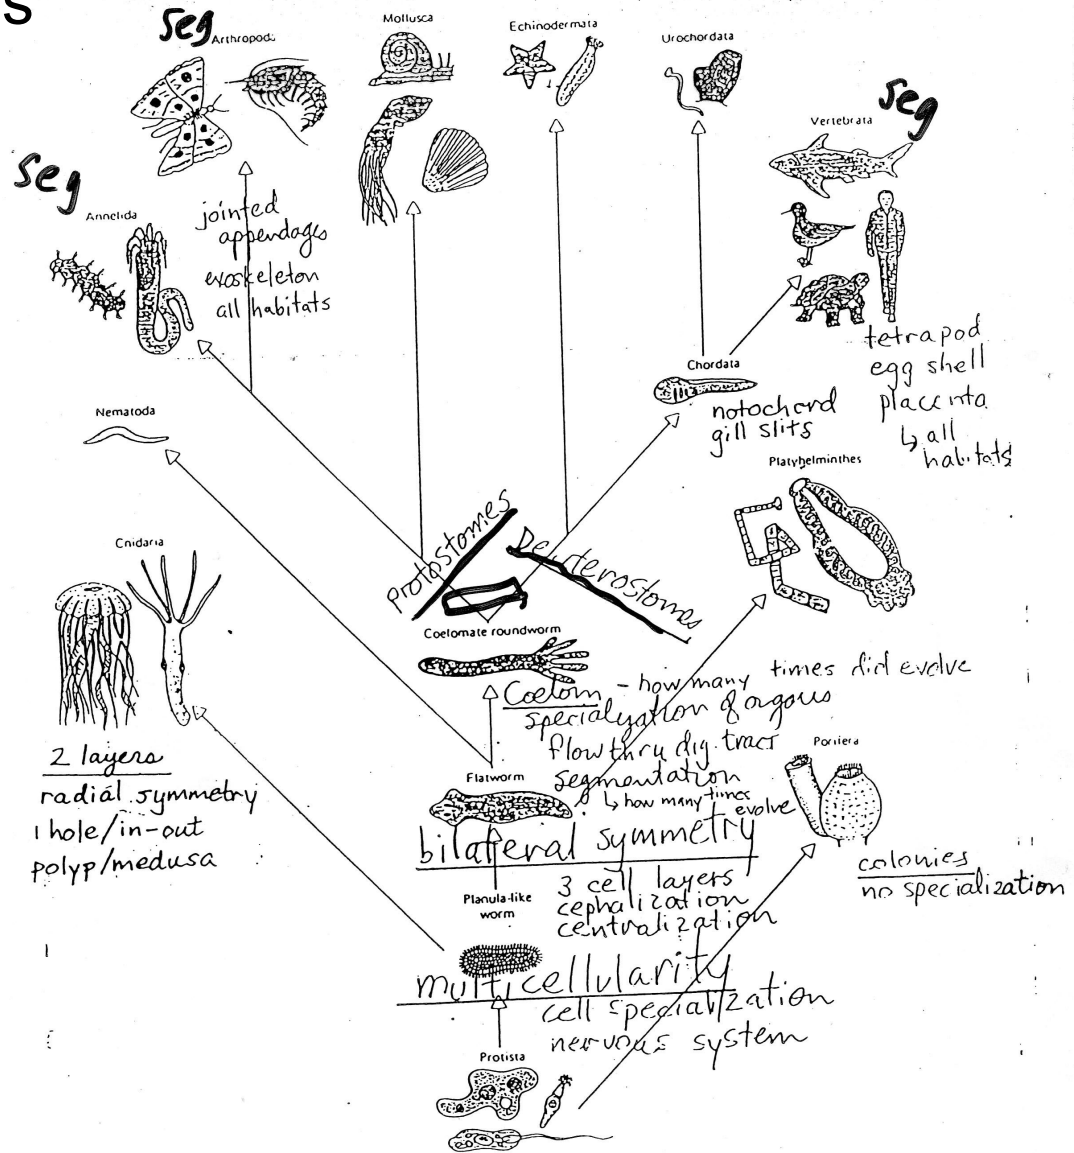 S
Seg
Arthropoda
Mollusca
Echinodermata
Urochordata
Seg
Vertebrata
Seg
Annelida
jointed
appendages
exoskeleton
all habitats
tetrapod
egg shell
placenta
↳ all
habitats
Chordata
notochord
gill slits
Nematoda
Platyhelminthes
Protostomes
Deuterostomes
Cnidaria
Coelomate roundworm
Coelom - how many times did evolve
specialyzation of organs
flow thru dig. tract
segmentation
↳ how many times
evolve
Porifera
2 layers
radial symmetry
1 hole/in-out
polyp/medusa
Flatworm
bilateral symmetry
3 cell layers
cephalization
centralization
colonies
no specialization
Planula-like
worm
multicellularity
cell specialization
nervous system
Protista